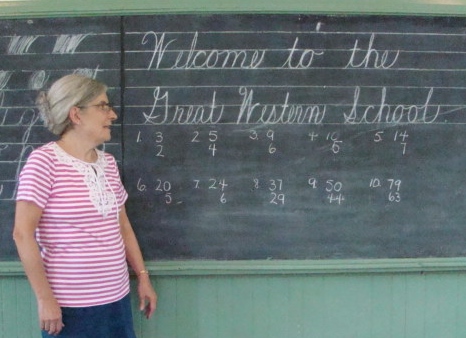 Welcome to the
Great Western School
1. 3 2. 5 3. 9 4. 10 5. 14
2 4 6 6 7
6. 20 7. 24 8. 37 9. 50 10. 79
5 6 29 44 63